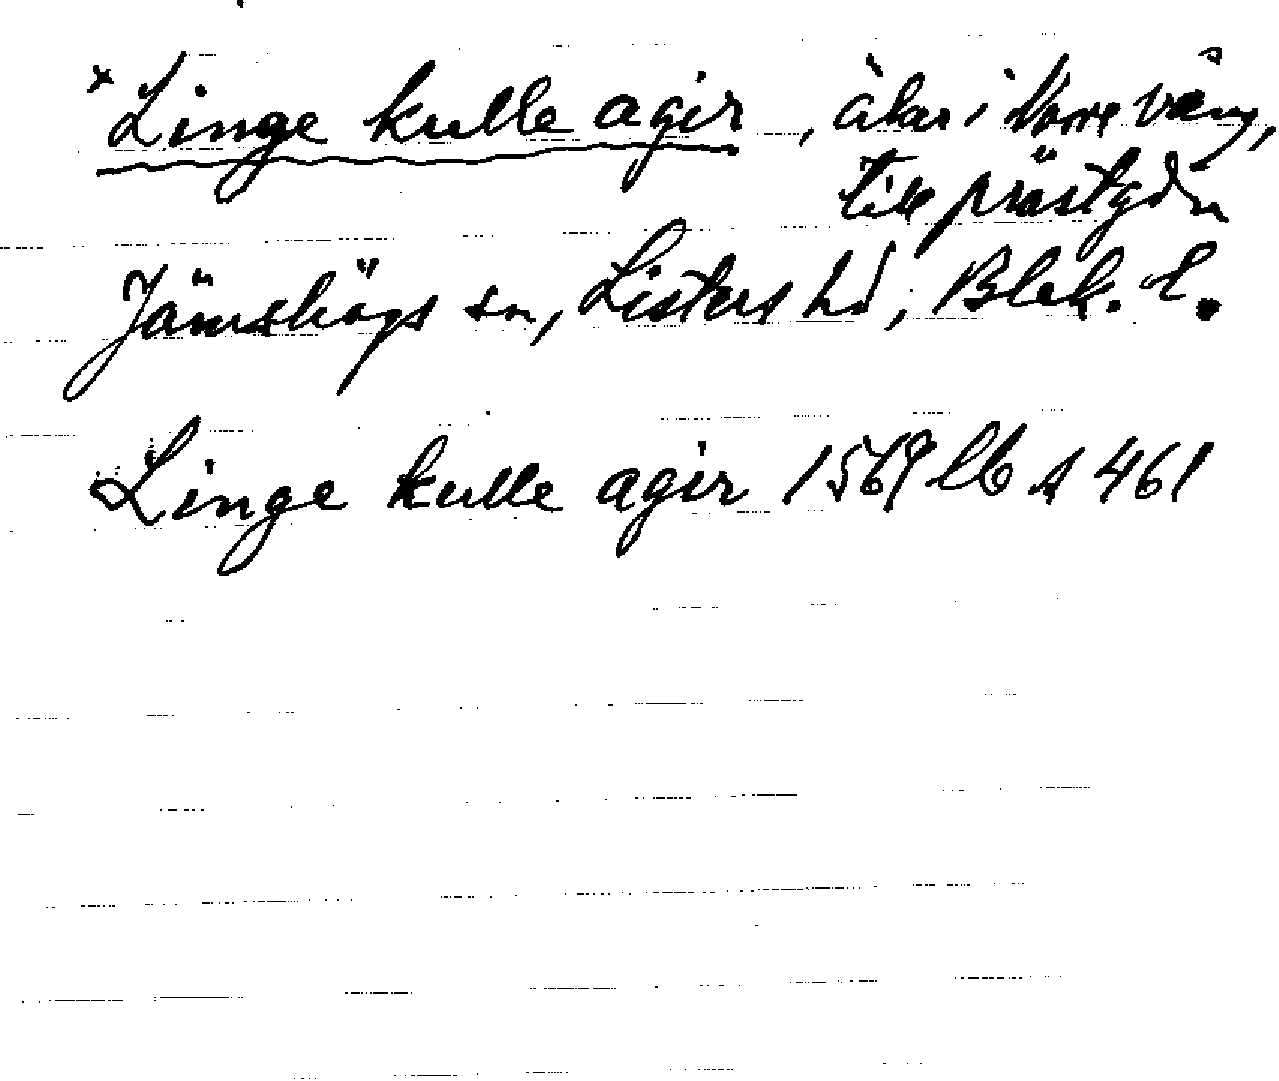 *Linge kulle agir, åkar i Norre vång,
till prästgdn
Jämshögs sn, Listers hd, Blek. l.
Linge kulle agir 1569 lb s 461